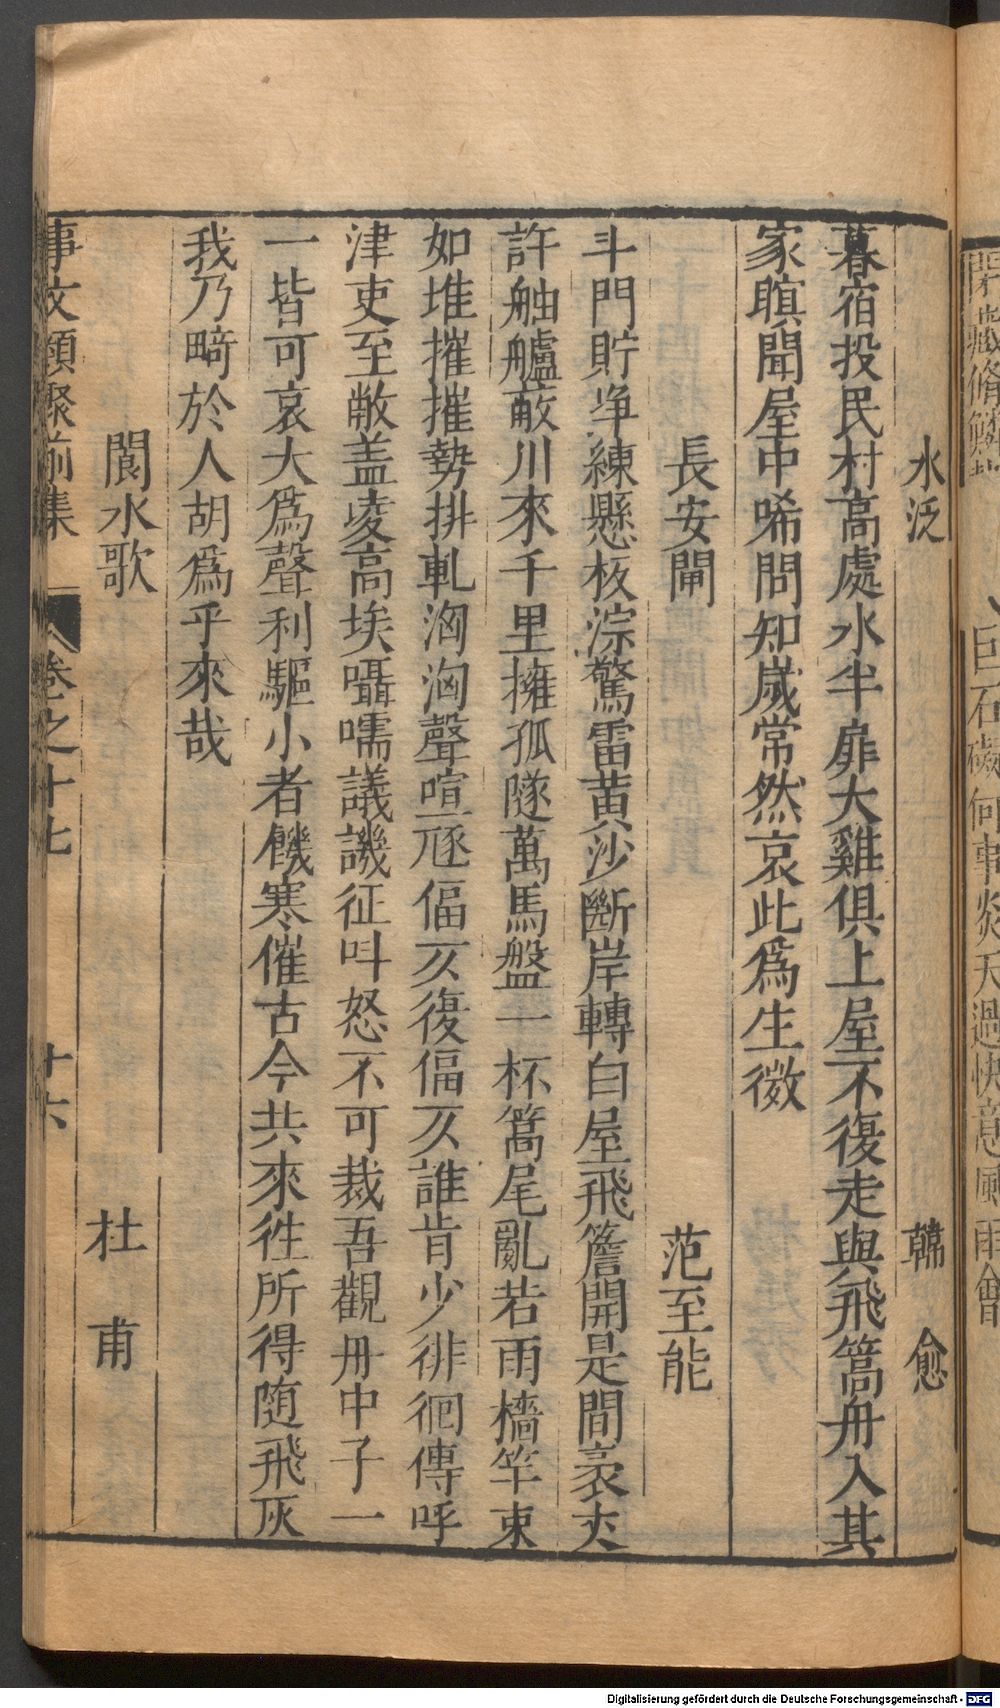 水泛　韓　愈
暮宿投民村高處水半扉犬雞俱上屋不復走與飛篙舟入其
家瞑聞屋中唏問知歲常然哀此爲生微
長安閘　范至能
斗門貯淨練懸板淙驚雷黄沙斷岸轉白屋飛簷開是間袤丈
許舳艫蔽川來千里擁孤隧萬馬盤一杯篙尾亂若雨檣竿束
如堆摧摧勢排軋洶洶聲喧豗偪仄復偪仄誰肯少徘徊傳呼
津吏至敝盖凌高埃囁嚅議譏征叫怒不可裁吾觀舟中子一
一皆可哀大爲聲利驅小者饑寒催古今共來徃所得随飛灰
我乃畸於人胡爲乎來哉
閬水歌　杜　甫
事文類聚前集　卷之十七　十六
Digitalisierung gefördert durch die Deutsche Forschungsgemeinschaft - DFG